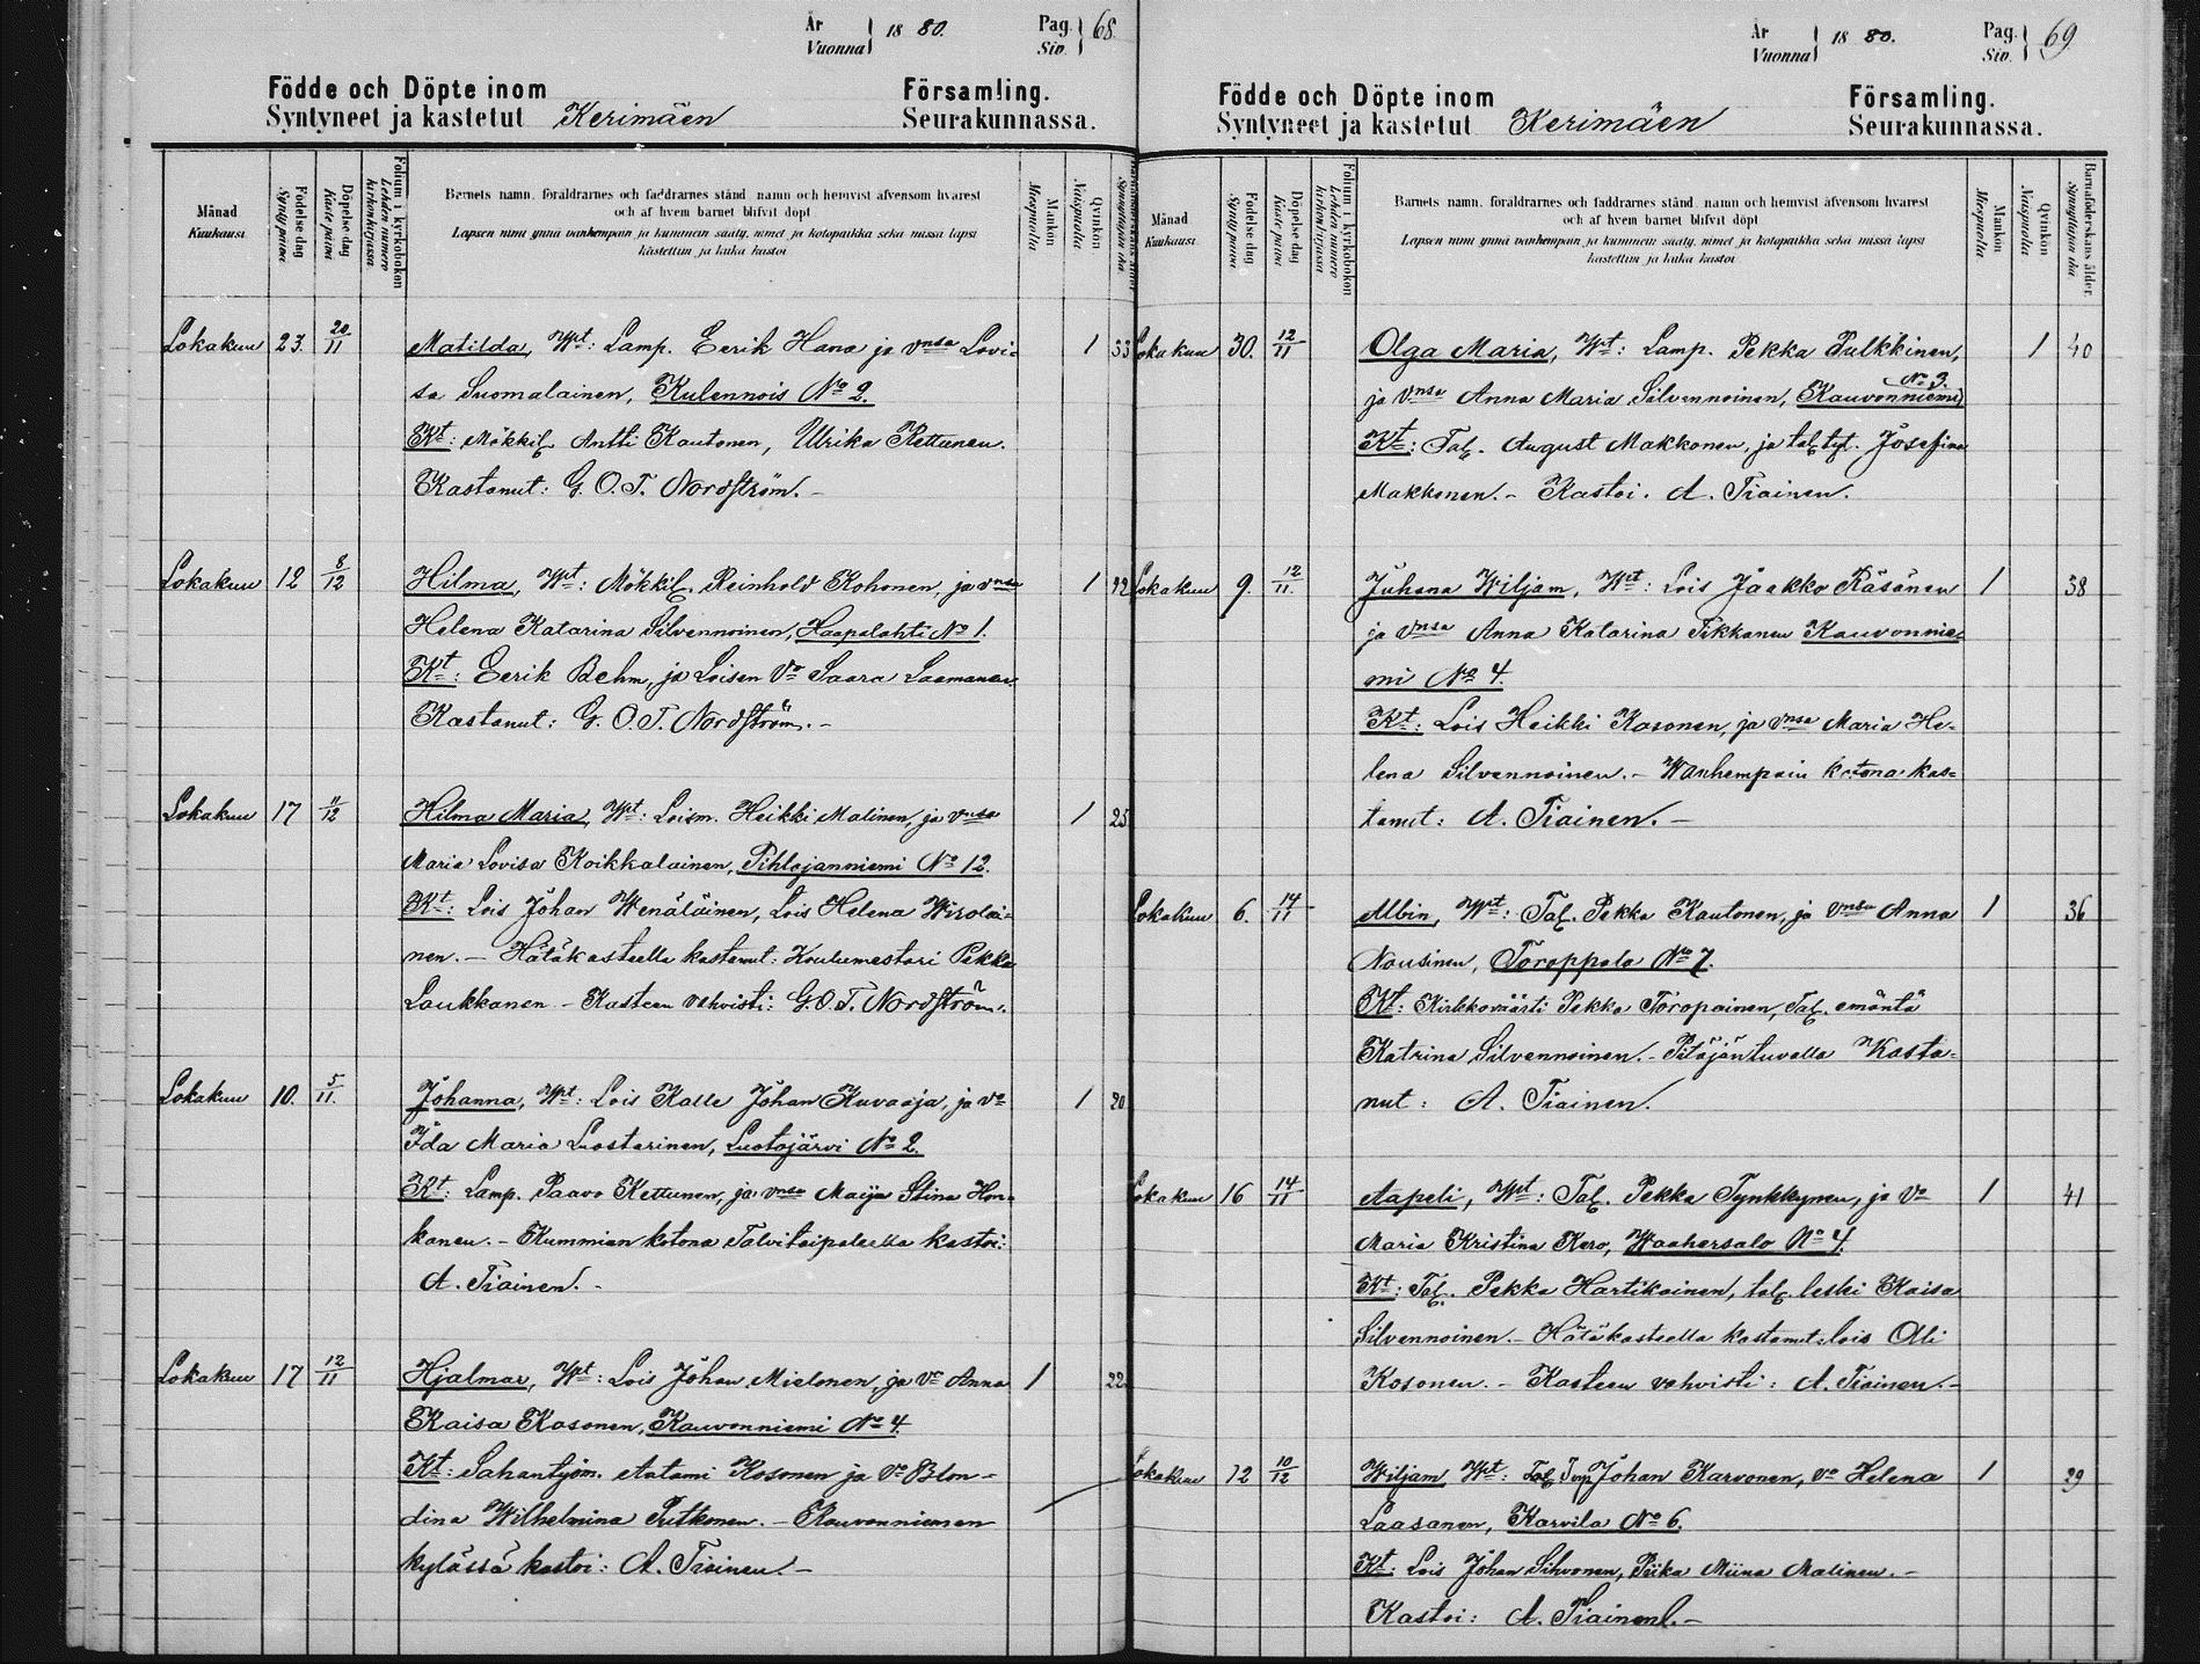 År
Vuonna } 18 80.
Pag.
Siv. } 68.
Födde och Döpte inom Församling.
Syntyneet ja kastetut Kerimäen Seurakunnassa.
Månad
Kuukausi
Födelse dag
Synty päivä
Döpelse dag
Kaste päivä
Folium i kyrkoboken
Lehden numero
kirkonkirjassa
Barnets namn, föräldrarnes och faddrarnes stånd, namn och hemvist äfvensom hvarest
och af hvem barnet blifvit döpt
Lapsen nimi ynnä vanhempain ja kummein sääty, nimet ja kotopaikka sekä missä lapsi
kastettiin ja kuka kastoi
Mankön
Miespuolta
Qvinkön
Naispuolta
Lokakuu 23. 20/11 Matilda, Wt: Lamp. Eerik Hana ja vnsa Lovi- 1 33
sa Suomalainen, Kulennois No 2.
Kt: Mökkil. Antti Kautonen, Ulrika Kettunen.
Kastanut: G. O. T. Nordström. -
Lokakuu 12 8/12 Hilma, Wt: Mökkil. Reinhold Kohonen, ja vnsa 1 22
Helena Katarina Silvennoinen, Haapalahti No 1.
Kt: Eerik Behm, ja Loisen Vo Saara Laamanen.
Kastanut: G. O. T. Nordström. -
Lokakuu 17 11/12 Hilma Maria, Wt: Loism. Heikki Malinen, ja vnsa 1 25
Maria Lovisa Koikkalainen, Pihlajanniemi No 12.
Kt: Lois Johan Wenäläinen, Lois Helena Wirolai-
nen. - Hätäkasteella kastanut: Koulumestari Pekka
Laukkanen - Kasteen vahvisti: G. O. T. Nordström.
Lokakuu 10. 5/11. Johanna, Wt: Lois Kalle Johan Kuvaaja, ja vo 1 20
Ida Maria Luostarinen, Luotojärvi No 2.
Kt: Lamp. Paavo Kettunen, ja vnsa Maija Stina Hon-
kanen. - Kummien kotona Talvitaipaleella kastoi:
A. Tiainen. -
Lokakuu 17 12/11 Hjalmar, Wt: Lois Johan Mielonen, ja vo Anna 1 22
Kaisa Kosonen, Kauvonniemi No 4.
Kt: Sahantyöm. Aatami Kosonen ja Vo Blon-
dina Wilhelmina Putkonen. - Kauvonniemen
kylässä kastoi: A. Tiainen. -
År
Vuonna } 18 80.
Pag.
Siv. } 69
Födde och Döpte inom Församling.
Syntyneet ja kastetut Kerimäen Seurakunnassa.
Månad
Kuukausi
Födelse dag
Synty päivä
Döpelse dag
Kaste päivä
Folium i kyrkoboken
Lehden numero
kirkonkirjassa
Barnets namn, föräldrarnes och faddrarnes stånd, namn och hemvist äfvensom hvarest
och af hvem barnet blifvit döpt
Lapsen nimi ynnä vanhempain ja kummein sääty, nimet ja kotopaikka sekä missä lapsi
kastettiin ja kuka kastoi
Mankön
Miespuolta
Qvinkön
Naispuolta
Barnaföderskans ålder
Synnyttäjän ikä
Lokakuu 30. 12/11 Olga Maria, Wt: Lamp. Pekka Pulkkinen, 1 40
ja Vnsa Anna Maria Silvennoinen, Kauvonniemi No 3.
Kt: Tal. August Makkonen, ja tal tyt. Josefina
Makkonen. - Kastoi. A. Tiainen.
Lokakuu 9. 12/11. Juhana Wiljam, Wt: Lois Jaakko Räsänen 1 38
ja Vnsa Anna Katarina Tikkanen Kauvonnie-
mi No 4.
Kt: Lois Heikki Kosonen, ja Vnsa Maria He-
lena Silvennoinen. - Wanhempain kotona kas-
tanut: A. Tiainen. -
Lokakuu 6. 14/11 Albin, Wt: Tal. Pekka Kautonen, ja Vnsa Anna 1 36
Nousinen, Toroppala No 7.
Kt: Kirkkoväärti Pekka Toropainen, Tal. emäntä
Katrina Silvennoinen. - Pitäjäntuvalla Kasta-
nut: A. Tiainen.
Lokakuu 16 14/11 Aapeli, Wt: Tal. Pekka Tynkkynen, ja Vo 1 41
Maria Kristina Kero, Waahersalo No 4.
Kt: Tal. Pekka Hartikainen, tal. leski Kaisa
Silvennoinen. - Hätäkasteella kastanut: lois Olli
Kosonen. - Kasteen vahvisti: A. Tiainen. -
Lokakuu 12 10/12 Wiljam, Wt: Tal. Johan Karvonen, Vo Helena 1 29
Laasanen, Karvila No 6.
Kt: Lois Johan Sihvonen, Piika Miina Malinen. -
Kastoi: A. Tiainen. -